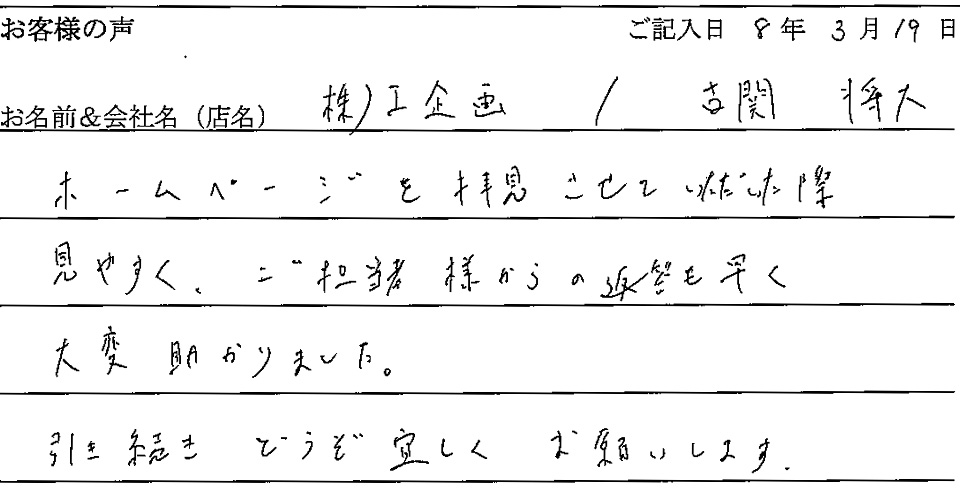 お客様の声 ご記入日 8年 3月 19日
お名前&会社名（店名） 株)工企画 / 古関 将大
ホームページを拝見させていただいた際
見やすく、ご担当者様からの返答も早く
大変助かりました。
引き続き どうぞ宜しく お願いします。